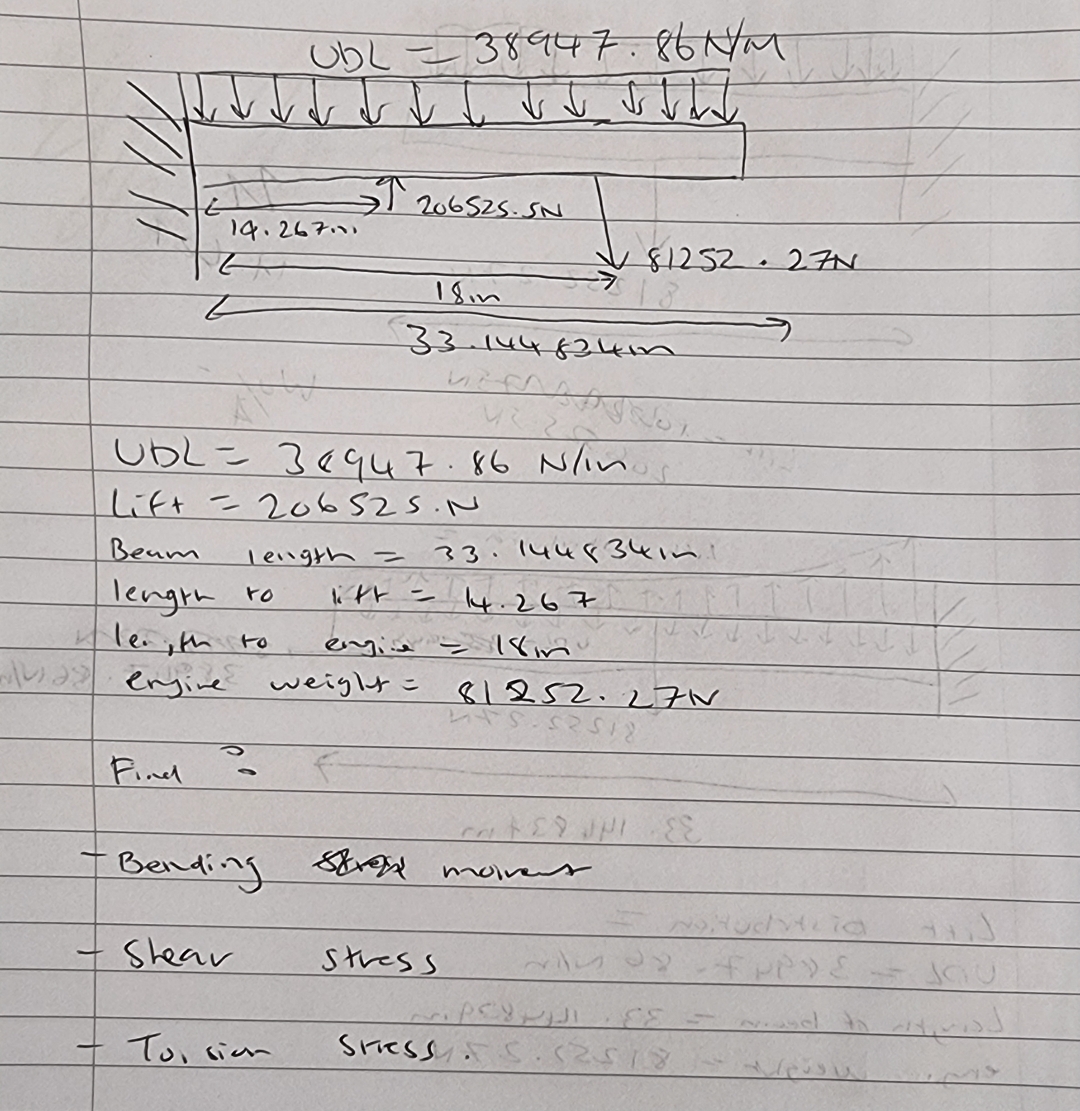 UDL = 38947.86 N/M
206525.5N
14.267m
81252.27N
18m
33.144834m
UDL = 38947.86 N/m
Lift = 206525.N
Beam length = 33.144834m
length to lift = 14.267
length to engine = 18m
engine weight = 81252.27N
Find :
- Bending moment
- Shear stress
- Torsion stress.